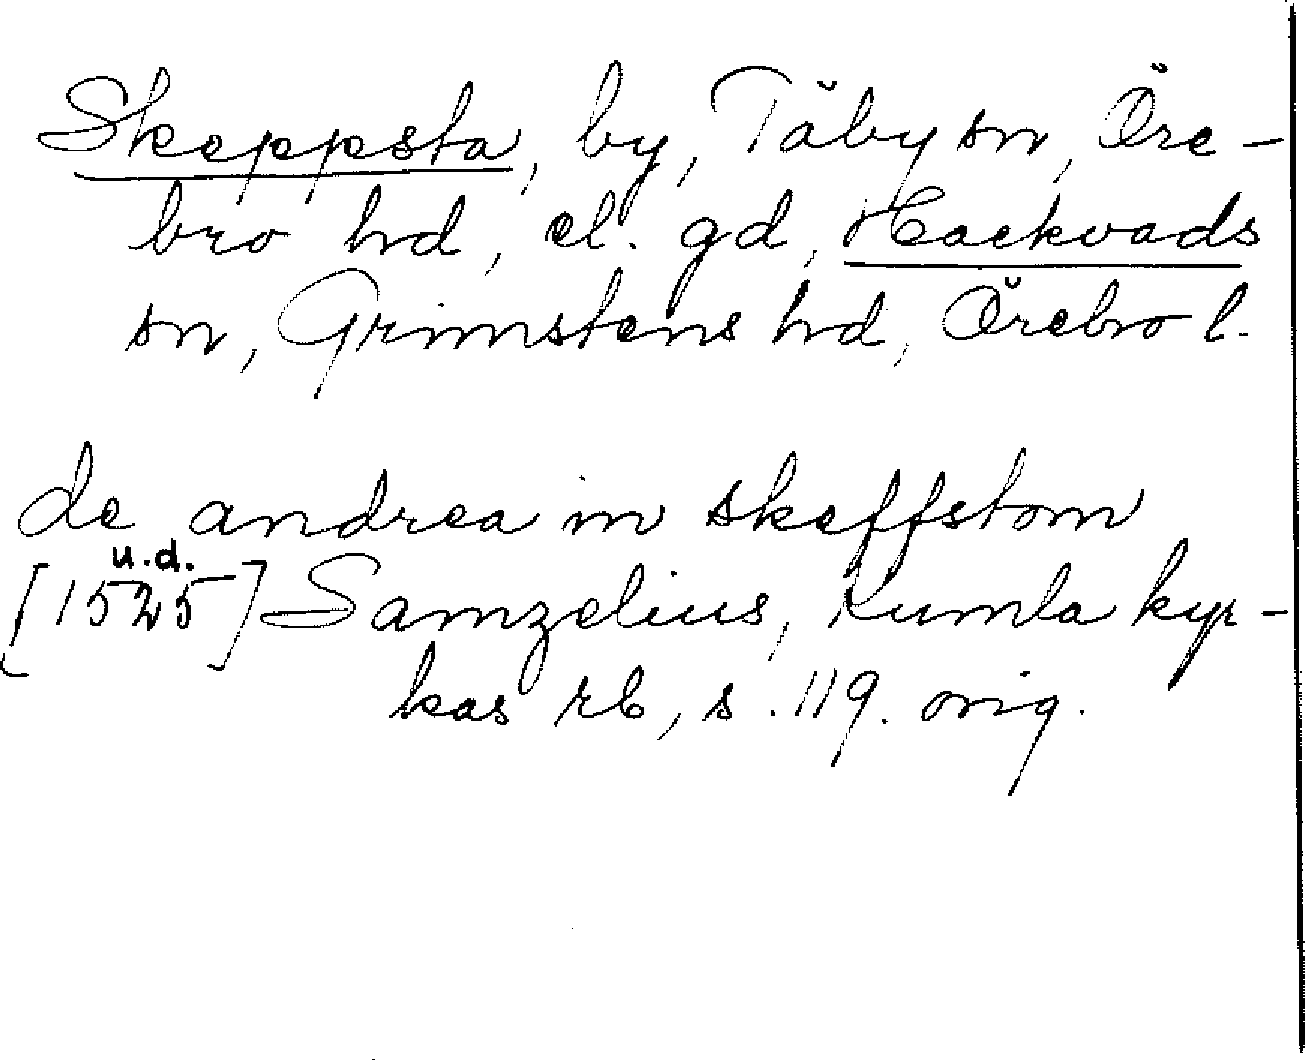 Skeppsta, by, Täby sn, Öre-
bro hd, el. gd, Hackvads
sn, Grimstens hd, Örebro l.
de andrea in skeffstom
u.d.
[1525] Samzelius, Kumla kyr-
kas rb, s. 119. orig.